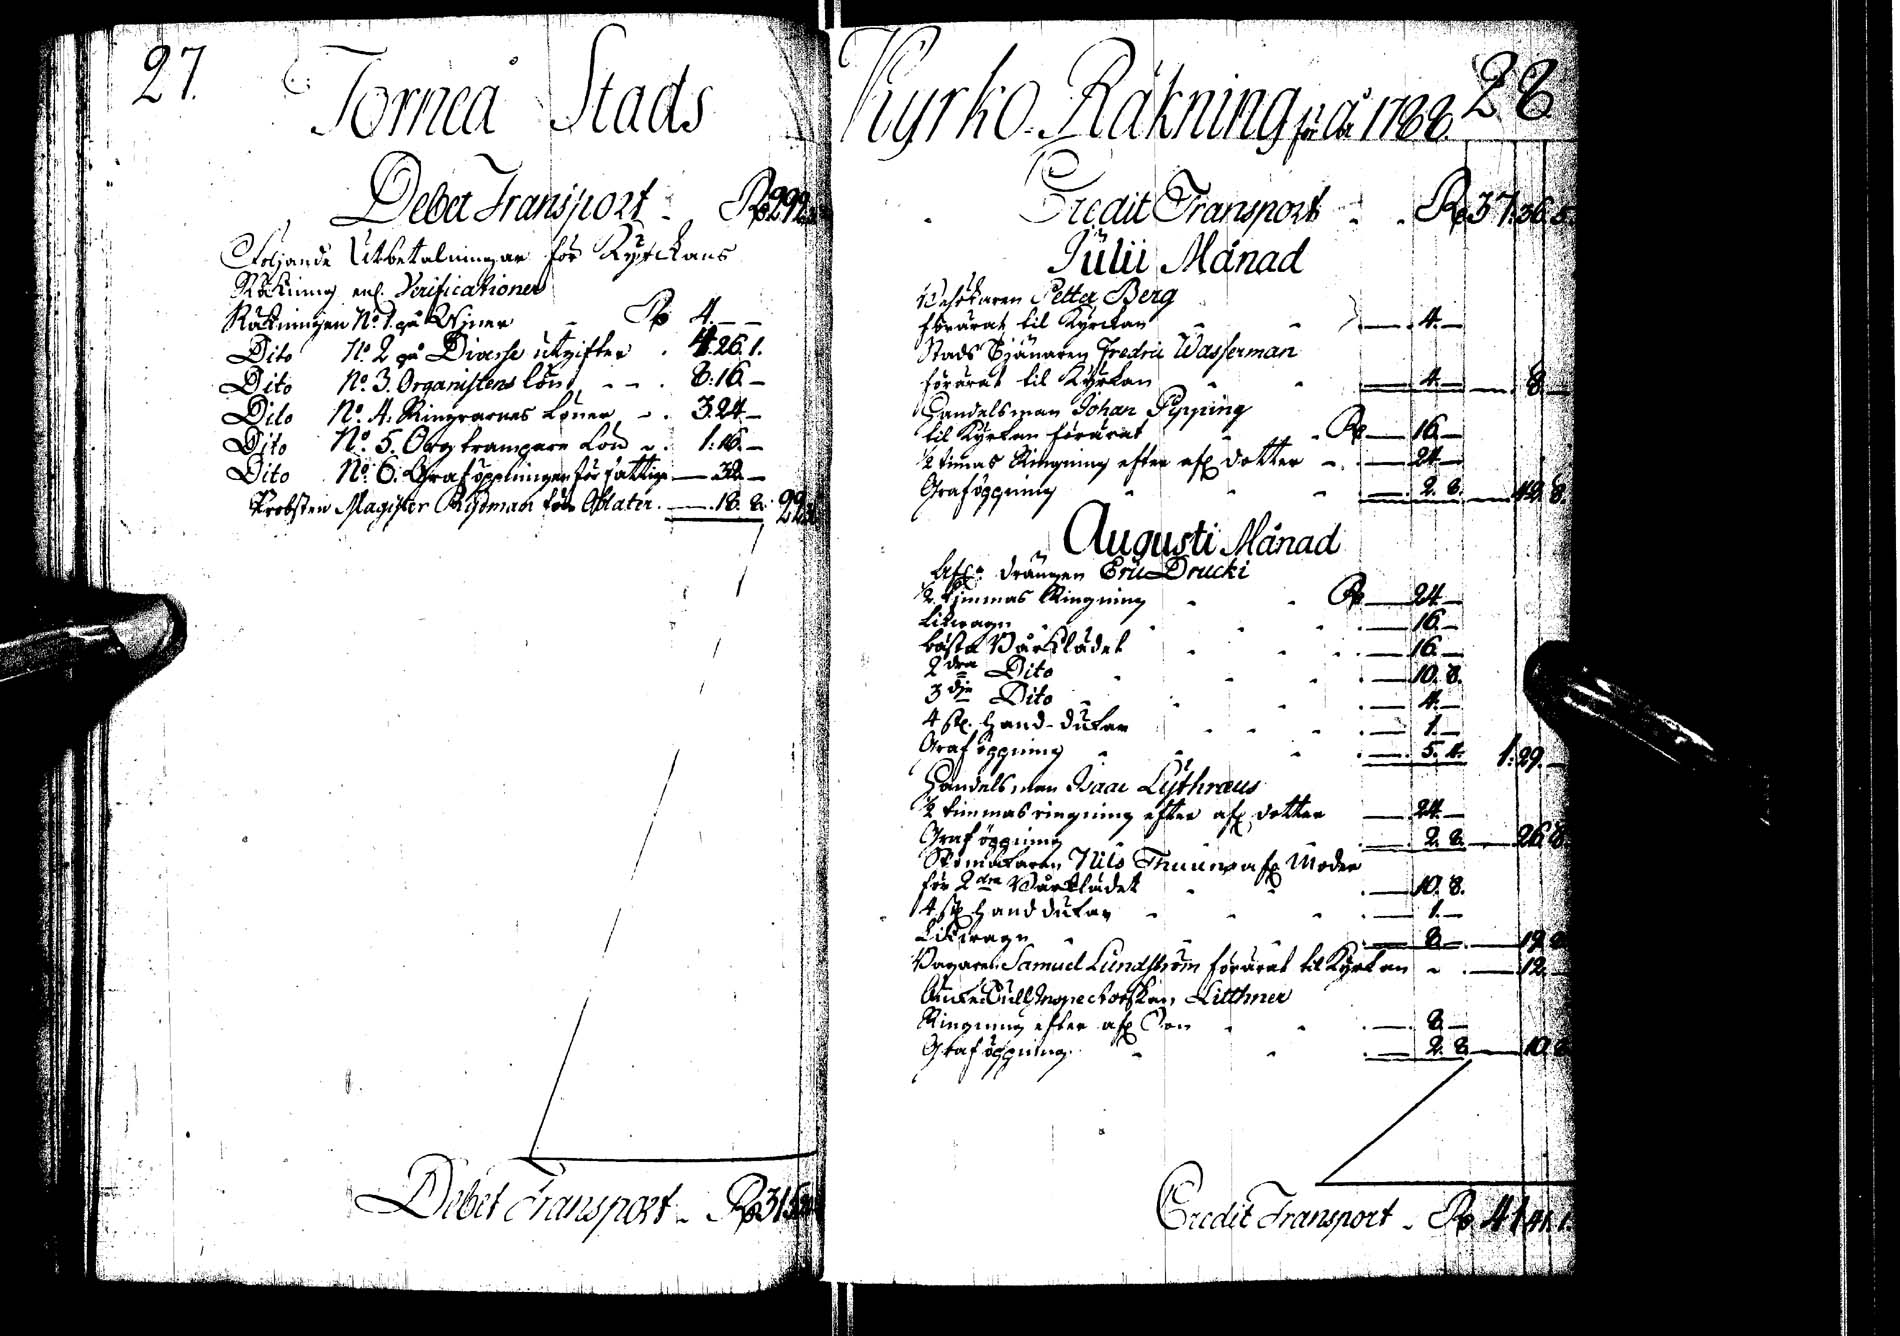 27.
Torneå Stads
Debet Transport - Rd 292
Följande Utbetalningar för Kyrckans
Räkning enl. Verificationer
Räkningen No. 1. på Winer - Rd 4.—
Dito No. 2 på Diverse utgifter . 4.26.1.
Dito No. 3. Organistens lön - - . 8:16.—
Dito No. 4. Ringrarnes Löner - . 3.24.—
Dito No. 5. Orgtrampare Lön - . 1:16.—
Dito No. 6. Graföppningen för fattige — 32.—
Probsten Magister Rydman för Oblater . —.18. 8. 22
Debet Transport - Rd 315
28
Kyrko-Räkning för år 1788.
Credit Transport - - Rd 37.36.5
Julii Månad
Besökaren Petter Berg
förärat til Kyrckan — 4.—
Stads Tjänaren Fredric Wasserman
förärat til Kyrkan — 4.— — 8 —
Handelsman Johan Pipping
til Kyrkan förärat - Rd — 16.—
½ timas Ringning efter afl. dotter - . — 24.—
Graföppning — 2. 8. — 42. 8.
Augusti Månad
Afl. drängen Eric Drucki
½ timmas Ringning - - Rd — 24.—
Likvagn — 16.—
bästa Bårklädet — 16.—
2dra Dito — 10. 8.
3dje Dito — 4.—
4 st. Hand-dukar — 1.—
Graföppning — 5. 4. 1.29.—
Handelsman Isaac Lythræus
½ timmas ringning efter afl. dotter — 24.—
Graföppning — 2. 8. — 26.8
Skomakaren Nils Thuuns afl. Moder
för 2dra Bårklädet — 10. 8.
4 st. Handdukar — 1.—
Likvagn — 8.— — 19. 8
Bagaren Samuel Lundström förärat til Kyrkan - . — 12.—
Enkefru Tull Inspectorskan Litthner
Ringning efter afl. Son — 8.—
Graföppning. — 2. 8 — 10. 8
Credit Transport - Rd 41.41.1.